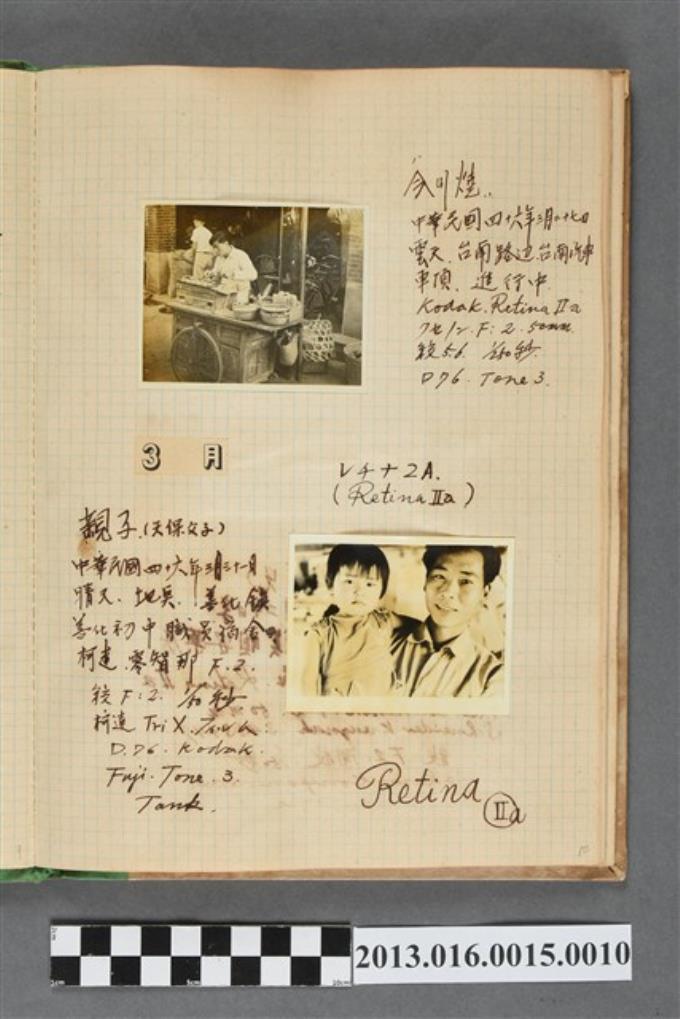 今川燒..
中華民國四十六年三月二十七日
雲天.台南路边.台南汽車
車頂.進行中.
Kodak.Retina IIa
F:2.50mm
鏡5.6. 秒.
D76.Tone 3.
3 月
(Retina IIa)
親子.(天保父子)
中華民國四十六年3月三十一日
晴天.地員.善化鎮
善化初中職員宿舍
柯達.零智那 F.2.
鏡F:2. 秒.
柯達 Tri X.
D.76.Kodak.
Fuji.Tone.3.
Tank.
Retina IIa
2013.016.0015.0010